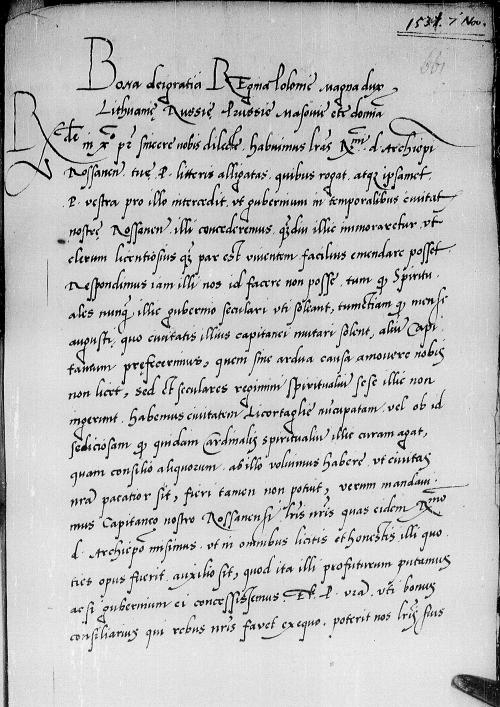 1537. 7 Nov.
661
Bona dei gratia Regina Polonie Magna dux
Lithuanie Russie Prussie Masovie etc domina
Rde in xo pr sincere nobis dilecte. habuimus lras Rmi d. Archiepi
Rossanen. tue P. litteris alligatas, quibus rogat, atque ipsamet
P. vestra pro illo intercedit, ut gubernium in temporalibus civitatis
nostre Rossanen. illi concederemus, quamdiu illic immoraretur, ut
clerum licentiosius quam par est viventem facilius emendare posset.
Respondimus iam illi nos id facere non posse. tum quod Spiritu
ales nunquam illic gubernio seculari uti soleant, tum etiam quod mense
augusti, quo civitatis illius capitanei mutari solent, alium Capi
taneum prefecerimus, quem sine ardua causa amovere nobis
non licet, Sed et seculares regimini spiritualium sese illic non
ingerunt. habemus civitatem Licortaglie nuncupatam. vel ob id
sediciosam quod quidam Cardinalis spiritualium illic curam agat,
quam consilio aliquorum. ab illo volumus habere, ut civitas
nra pacatior sit, fieri tamen non potuit, verum mandavi
mus Capitaneo nostro Rossanensi lris nris quas eidem Rmo
d. Archiepo misimus. ut in omnibus licitis et honestis illi quo
ties opus fuerit. auxilio sit, quod ita illi profuturum putamus
ac si gubernium ei concessissemus. P. vra. uti bonus
consiliarius qui rebus nris favet ex equo. poterit nos lris suis